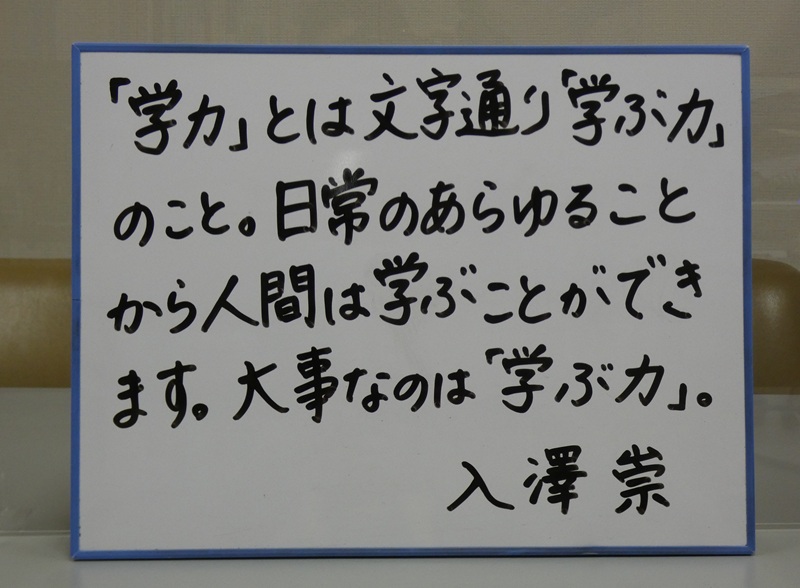 「学力」とは文字通り「学ぶ力」
のこと。日常のあらゆること
から人間は学ぶことができ
ます。大事なのは「学ぶ力」。
入澤 崇